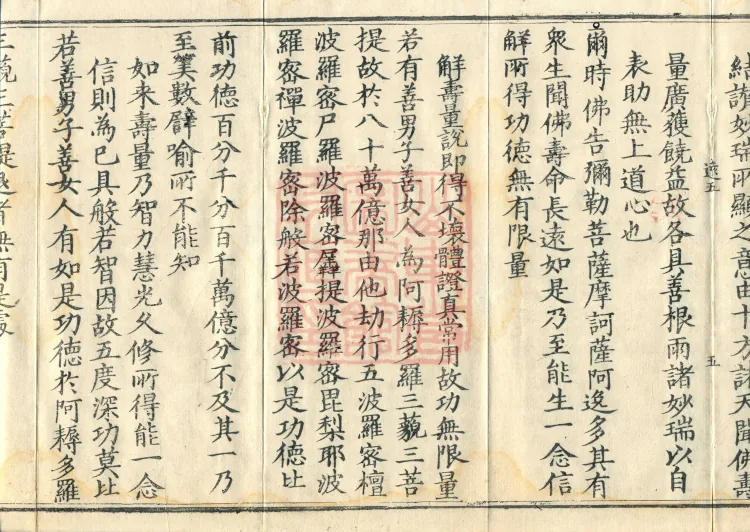 結說妙瑞所顯之意由十方諸天聞佛壽
量廣獲饒益故各具善根雨諸妙瑞以自
表助無上道心也
爾時佛告彌勒菩薩摩訶薩阿逸多其有
衆生聞佛壽命長遠如是乃至能生一念信
解所得功德無有限量
解壽量說即得不壞體證真常用故功無限量
若有善男子善女人為阿耨多羅三藐三菩
提故於八十萬億那由他劫行五波羅密檀
波羅密尸羅波羅密羼提波羅密毘梨耶波
羅密禪波羅密除般若波羅密以是功德比
前功德百分千分百千萬億分不及其一乃
至筭數譬喻所不能知
如来壽量乃智力慧光久修所得能一念
信則為已具般若智因故五度深功莫比
若善男子善女人有如是功德於阿耨多羅
三藐三菩提退者無有是處
五